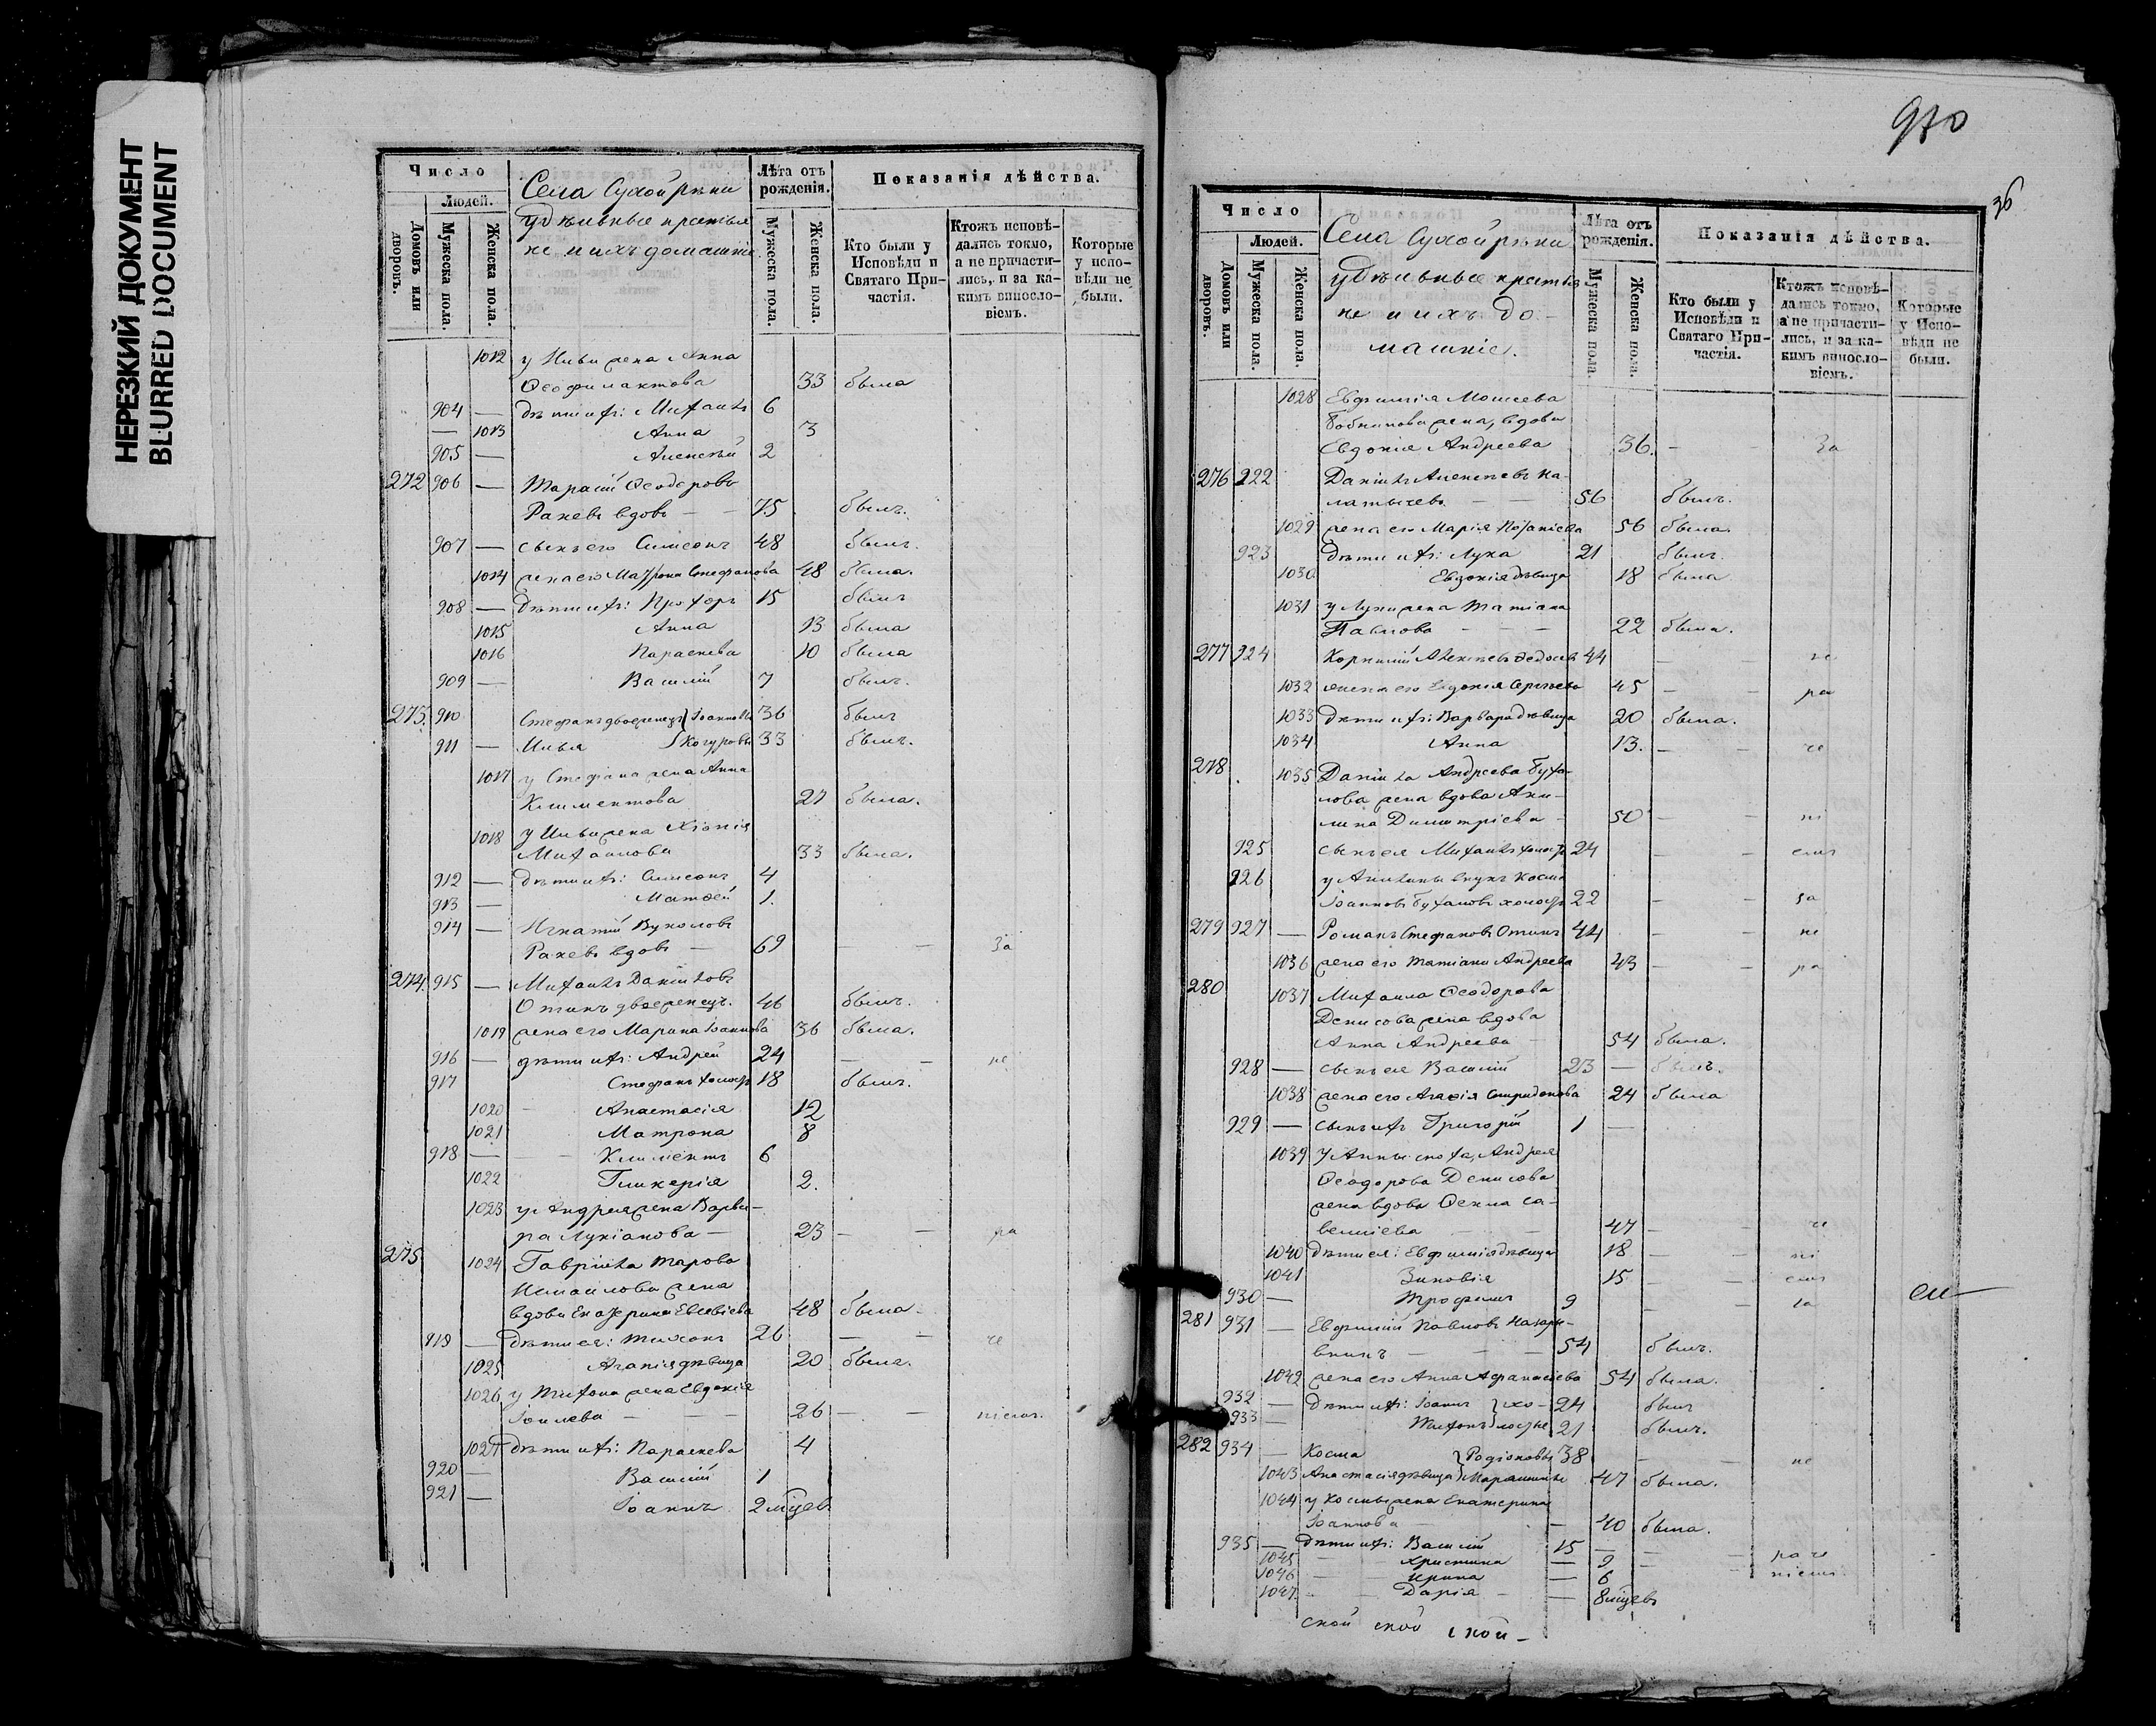 НЕРЕЗКИЙ ДОКУМЕНТ
BLURRED DOCUMENT
Число
Людей.
Домовъ или дворовъ.
Мужеска пола.
Женска пола.
Села Сухой рѣки
удѣльные крестья
не и ихъ домашніе.
Лѣта отъ рожденія.
Мужеска пола.
Женска пола.
Показанія дѣйства.
Кто были у Исповѣди и Святаго Причастія.
Ктожъ исповѣдались токмо, а не причастились, и за какимъ винословіемъ.
Которые у исповѣди не были.
1012 у Ильи жена Анна
Ѳеофилактова 33 была
904 — дѣти ихъ: Михаилъ 6
— 1013 Анна 3
905 — Алексѣй 2
272 906 — Тарасій Ѳеодоровъ
Ракевъ вдовъ — 75 былъ.
907 — сынъ его Симеонъ 48 былъ.
1014 жена его Матрона Стефанова 48 была.
908 — дѣти ихъ: Прохоръ 15 былъ
1015 Анна 13 была
1016 Параскева 10 была
909 — Василій 7 былъ.
273. 910 Стефанъ двоеженецъ } Іоанновы 36 былъ
911 — Илья } Когуровы 33 былъ.
1017 у Стефана жена Анна
Климентова 27 была.
1018 у Ильи жена Хіонія
Михаилова 33 была.
912 — дѣти ихъ: Симеонъ 4
913 — Матѳей 1.
914 — Игнатій Вуколовъ
Ракевъ вдовъ — 69 — за
274. 915 — Михаилъ Даніиловъ
Отинъ двоеженецъ. 46 былъ.
1019 жена его Марина Іоаннова 36 была.
916 — дѣти ихъ: Андрей 24 — — не
917 Стефанъ холостъ 18 былъ.
1020 — Анастасія 12
1021 Матрона 8
918 — — Климентъ 6
1022 Гликерія 2.
1023 у Андрея жена Варва-
ра Лукіанова — 23 — — ра
275 1024 Гавріила Тарова
Измаилова жена
вдова Екатерина Евсевіева 48 была.
919 — дѣти ея: Тихонъ 26 — — че
1025 Агапія дѣвица 20 была.
1026 у Тихона жена Евдокія
Іоилева — — — 26 — — ніемъ.
1027 дѣти ихъ: Параскева 4
920 — Василій 1
921 — Іоаннъ 2 мѣсяцевъ
970
36
Число
Людей.
Домовъ или дворовъ.
Мужеска пола.
Женска пола.
Села Сухой рѣки
удѣльные крестья
не и ихъ до-
машніе.
Лѣта отъ рожденія.
Мужеска пола.
Женска пола.
Показанія дѣйства.
Кто были у Исповѣди и Святаго Причастія.
Ктожъ исповѣдались токмо, а не причастились, и за какимъ винословіемъ.
Которые у Исповѣди не были.
1028 Евфимія Моисеева
жена, вдова
Евдокія Андреева 36. — за
276 922 Даніилъ Алексѣевъ Ка-
латычевъ — — 56 былъ.
1029 жена его Марія 56 была.
923 дѣти ихъ: Лука 21 былъ.
1030 Евдокія дѣвица 18 была
1031 у Луки жена Татіана
Павлова — — — 22 была.
277 924 Корнилій Алексѣевъ Федосѣевъ 44 — — не
1032 жена его Евдокія Сергѣева 45 — — ра
1033 дѣти ихъ: Варвара дѣвица 20 была.
1034 Анна 13. — — че
278 1035 Даніила Андреева Буха-
лова жена вдова Аки-
лина Димитріева — 50 — — ні
925 сынъ ея Михаилъ холостъ 24 — — емъ
926 у Акилины внукъ Косма
Іоанновъ Бухаловъ холостъ 22 — — за
279 927 — Романъ Стефановъ Отинъ 44 — — не
1036 жена его Татіана Андреева 43 — — ра
280 1037 Михаила Ѳеодорова
Денисова жена вдова
Анна Андреева 54 была.
928 — сынъ ея Василій 23 — былъ.
1038 жена его Агаѳія Спиридонова 24 была
929 — сынъ ихъ Григорій 1 —
1039 у Анны сноха, Андрея
Ѳеодорова Денисова
жена вдова Ѳекла Са-
веліева 47 — — че
1040 дѣти ея: Евфимія дѣвица 18 — — ні
1041 Зиновія 15 — — емъ
930 — Трофимъ 9 — — за
281 931 — Евфимій Павловъ Назарь-
вкинъ — — — 54 былъ.
1042 жена его Анна Афанасіева 54 была.
932 — дѣти ихъ: Іоаннъ } хо- 24 былъ
933 — Тихонъ } лосты 21 былъ.
282 934 — Косма } Родіоновы 38 — — не
1043 Анастасія дѣвица } 47 была.
1044 у Космы жена Екатерина
Іоаннова — 40 была.
935 — дѣти ихъ: Василій 15 — — ра че
1045 — — Христина — 9 — — ніемъ
1046 — — Ирина — 6
1047 — — Дарія — — 8 мѣсяцевъ
ской ской ской —